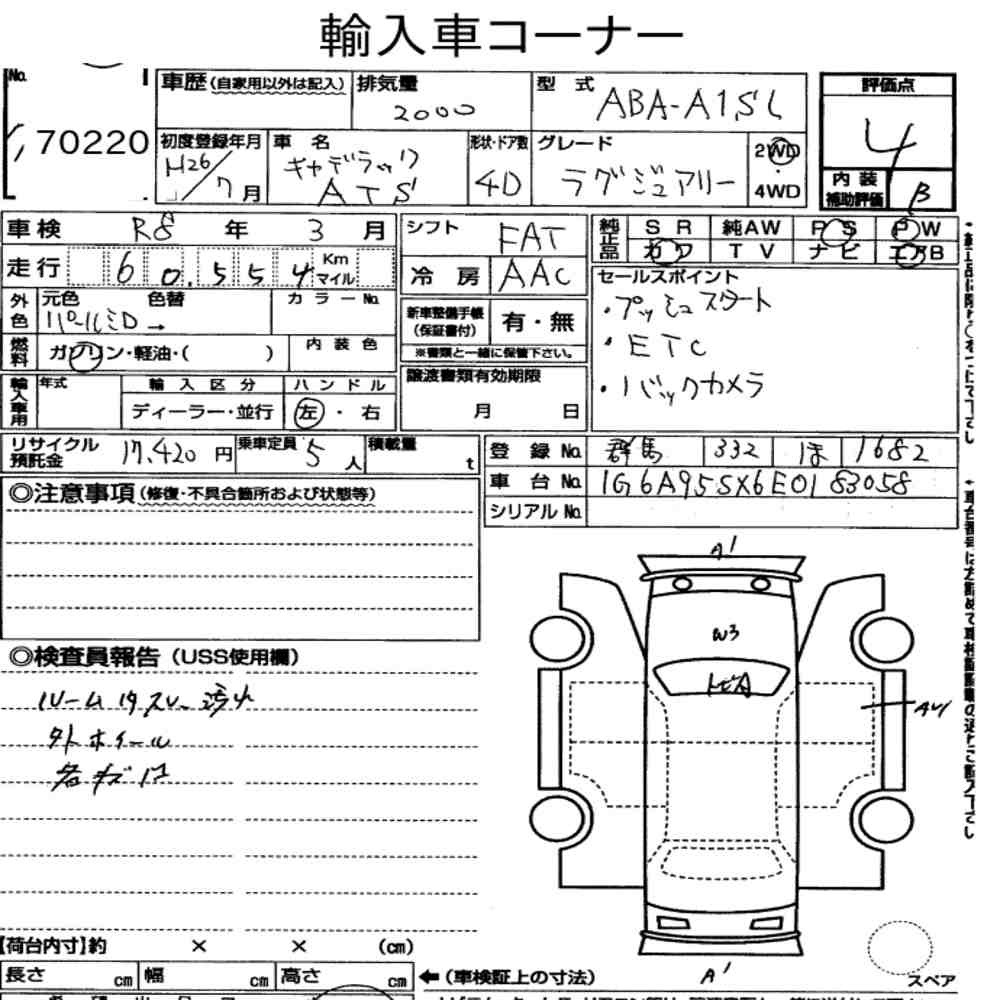 輸入車コーナー
No. 70220
車歴(自家用以外は記入) 排気量 2000 型式 ABA-A1SL
評価点 4
初度登録年月 H26/7月 車名 キャデラック ATS 形状・ドア数 4D グレード ラグジュアリー 2WD 4WD
内装補助評価 B
車検 R8年 3月 シフト FAT
純正品 SR 純AW PS PW
カワ TV ナビ エアB
走行 60,554 Km マイル 冷房 AAC
セールスポイント
・プッシュスタート
・ETC
・バックカメラ
外色 元色 パールミD→ 色替 カラーNo.
新車整備手帳(保証書付) 有・無
※書類と一緒に保管下さい。
燃料 ガソリン・軽油・( ) 内装色
輸入車用 年式 輸入区分 ディーラー・並行 ハンドル 左・右
譲渡書類有効期限 月 日
リサイクル預託金 17,420円 乗車定員 5人 積載量 t
登録No. 群馬 332 ほ 1682
車台No. 1G6A95SX6E0183058
シリアルNo.
◎注意事項(修復・不具合箇所および状態等)
◎検査員報告(USS使用欄)
外ホイール
各キズ凹
A1
W3
トビA
A1
スペア
【荷台内寸】約 × × (cm)
長さ cm 幅 cm 高さ cm ←(車検証上の寸法)